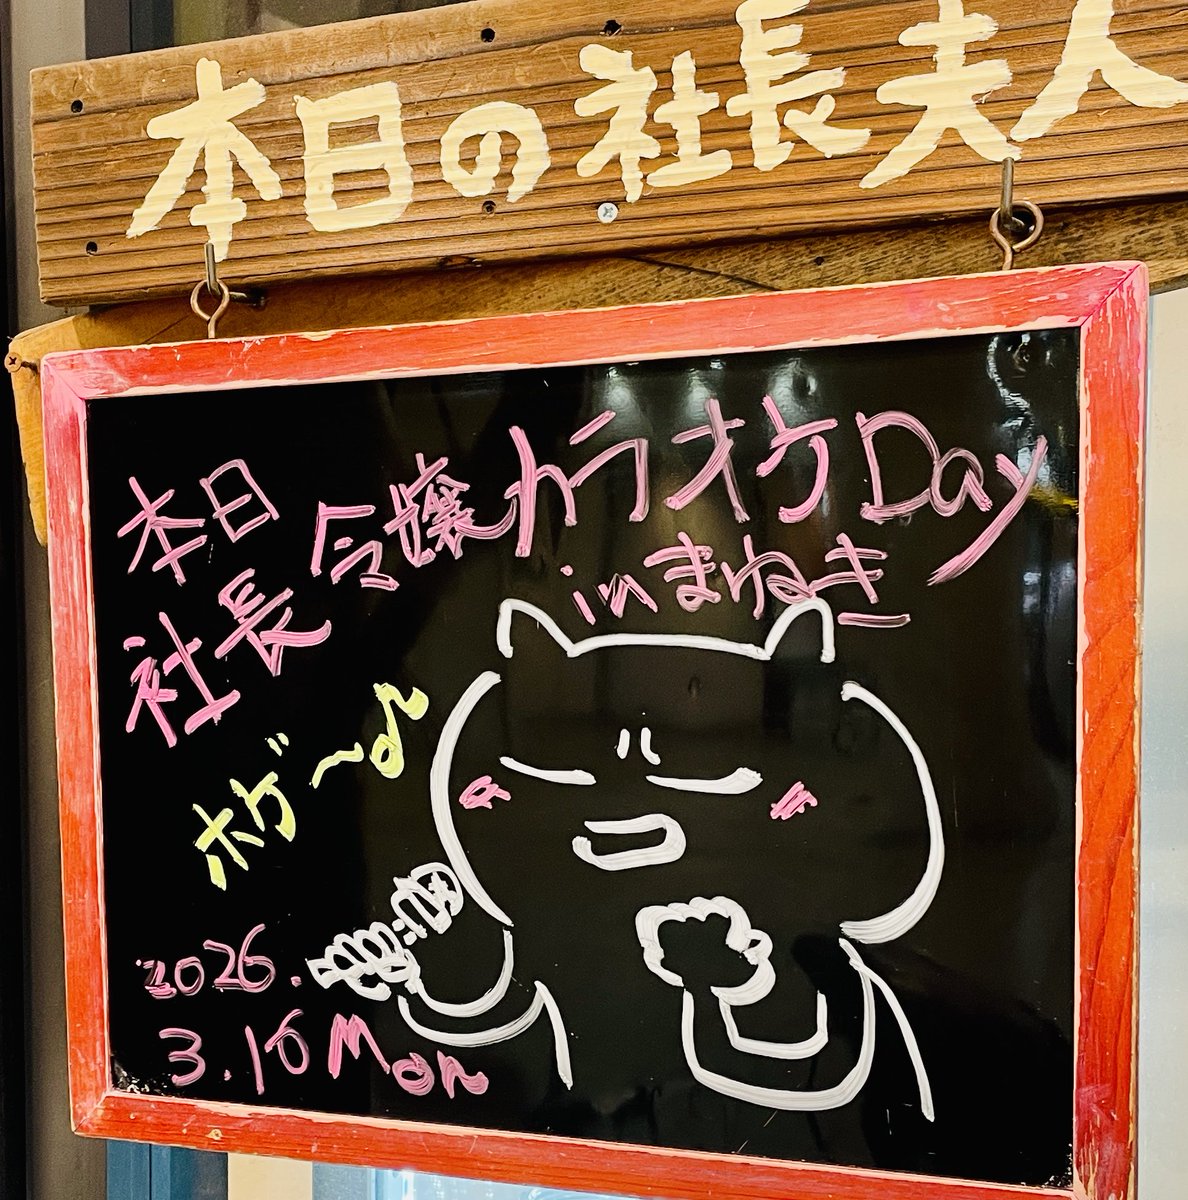 本日の社長夫人
本日
社長令嬢カラオケDay
inまねき
ホゲ〜♪
2026.
3.16 Mon